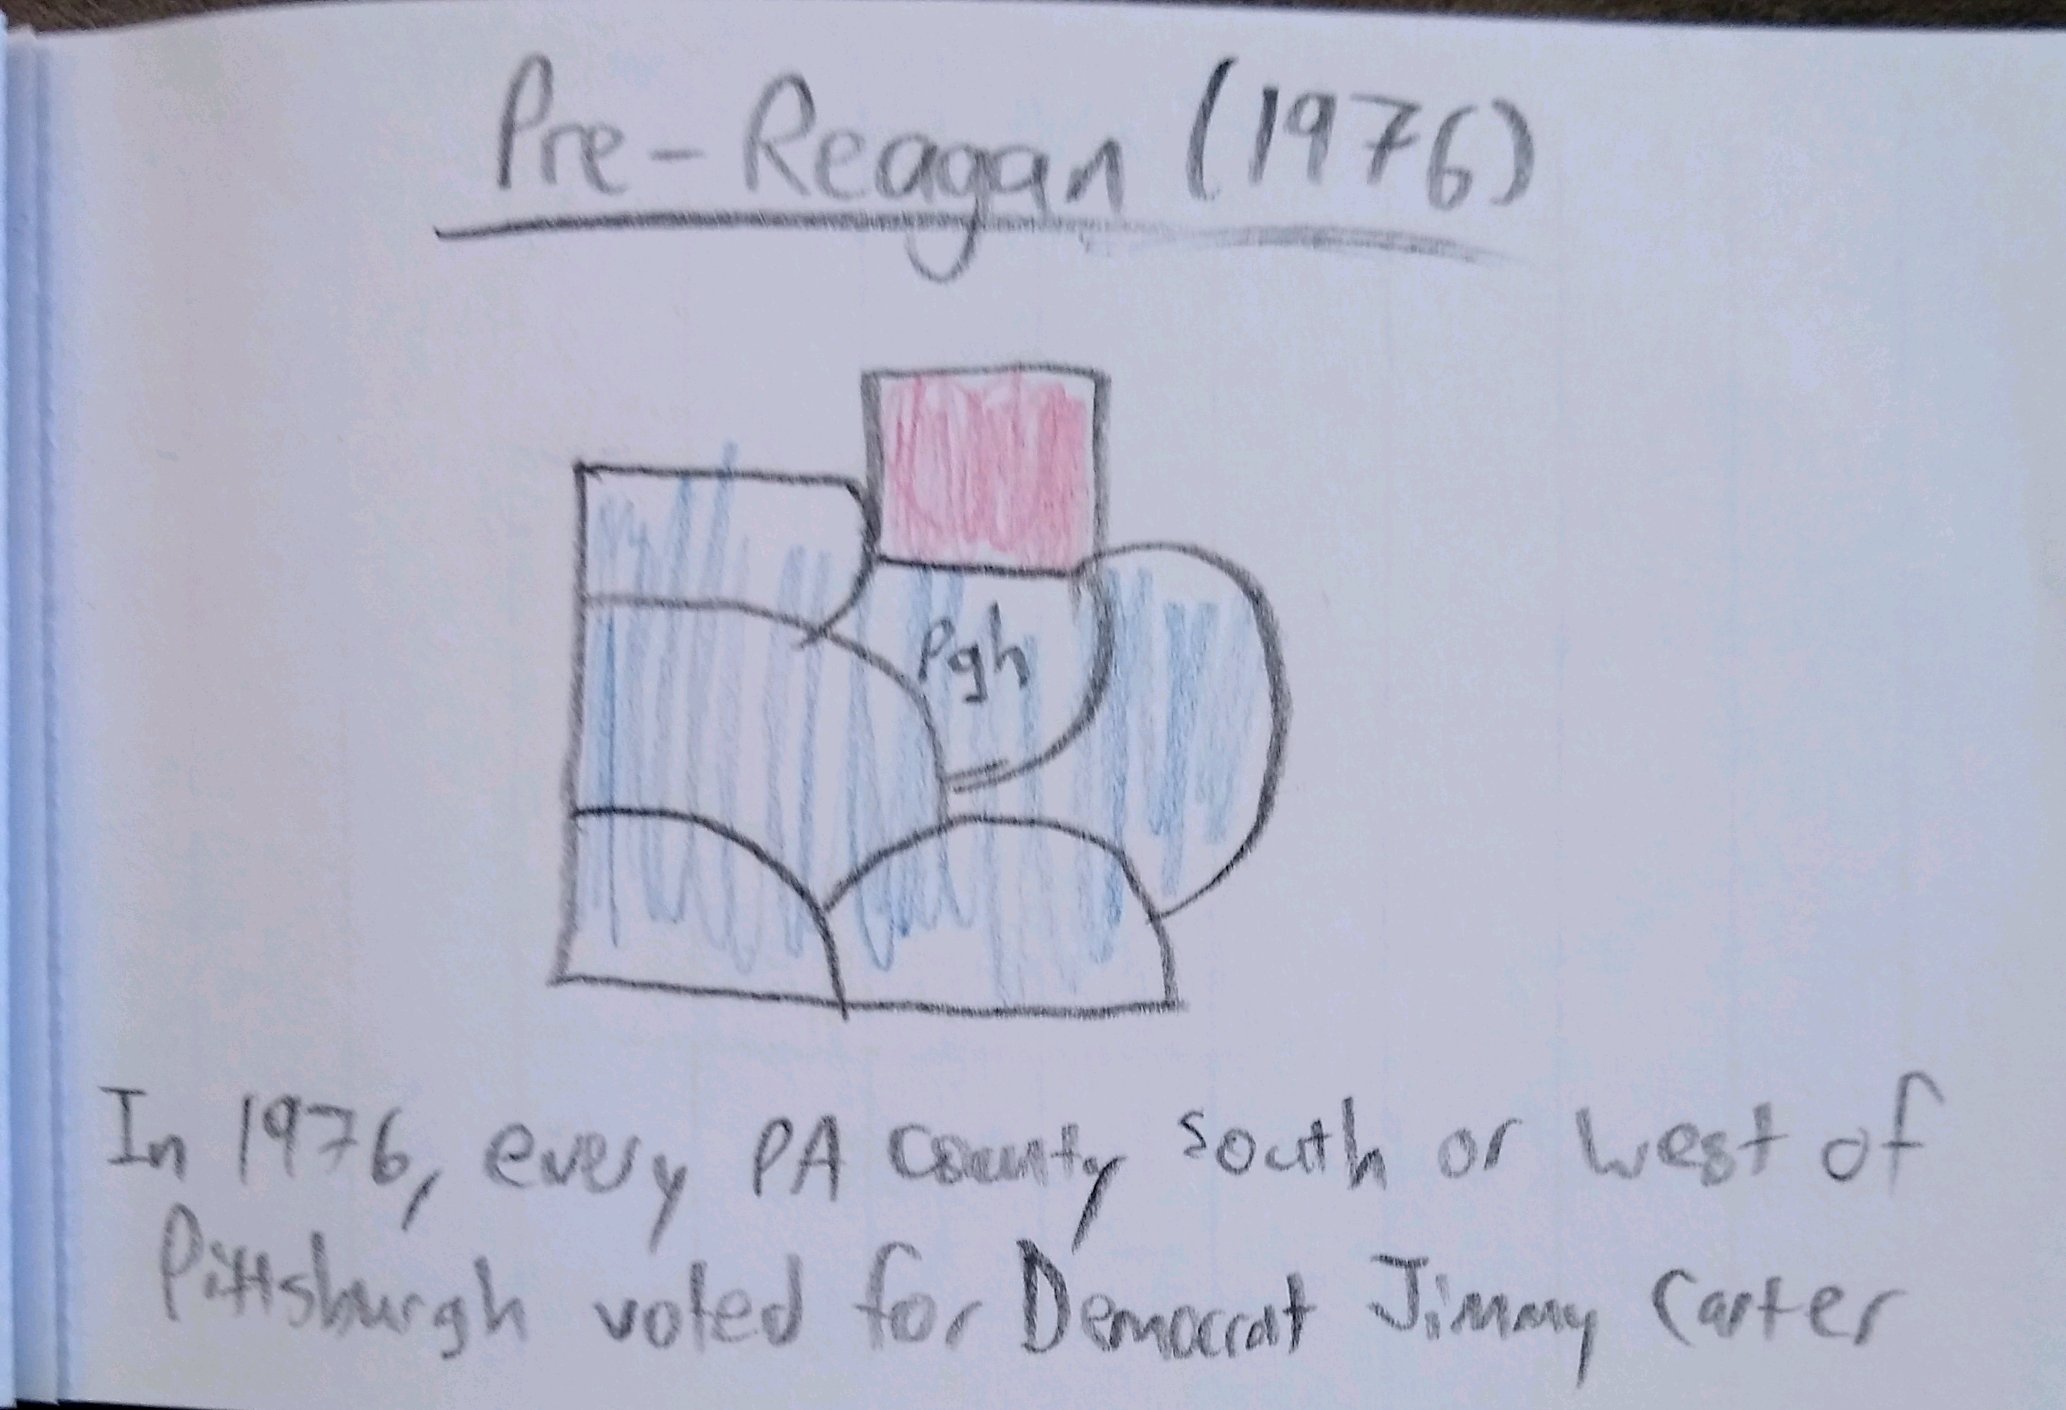 Pre-Reagan (1976)
Pgh
In 1976, every PA County south or west of
Pittsburgh voted for Democrat Jimmy Carter